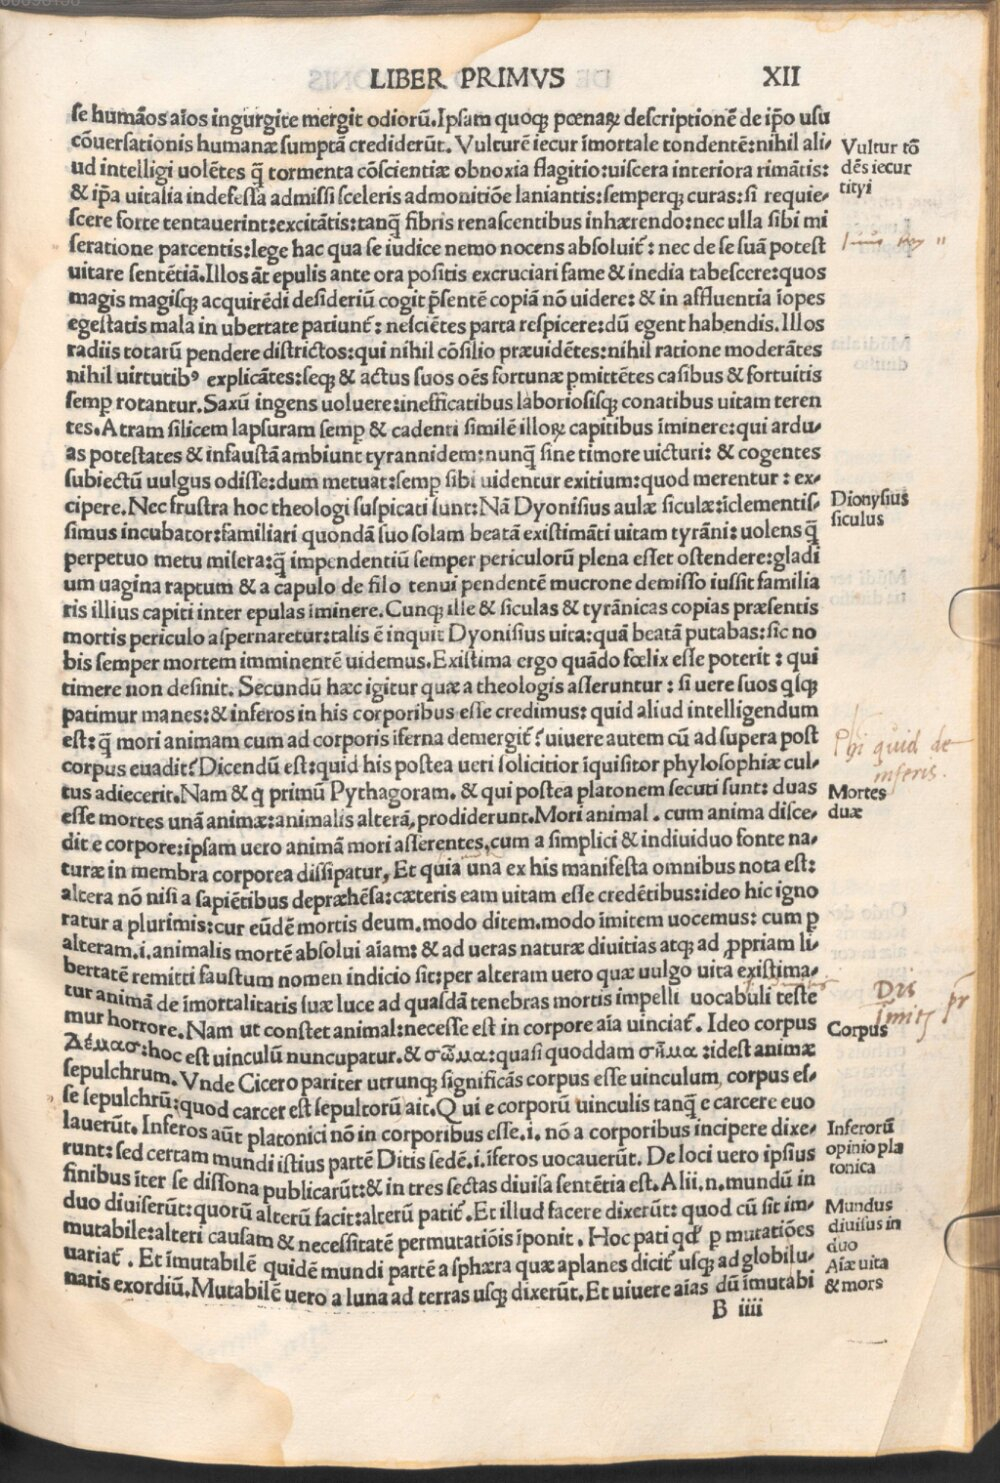 LIBER PRIMVS XII
se humãos aĩos ingurgite mergit odiorũ.Ipsam quoqꝫ pœnaꝝ descriptionẽ de ip̃o usu
cõuersationis humanæ sumptã crediderũt. Vulturẽ iecur ĩmortale tondentẽ:nihil ali⸗
ud intelligi uolẽtes q̃ tormenta cõscientiæ obnoxia flagitio:uiscera interiora rimãtis:
& ip̃a uitalia indefessa admissi sceleris admonitiõe laniantis:semperqꝫ curas:si requie⸗
scere forte tentauerint:excitãtis:tanq̃ fibris renascentibus inhærendo:nec ulla sibi mi
seratione parcentis:lege hac qua se iudice nemo nocens absoluit̃: nec de se suã potest
uitare sentẽtiã.Illos ãt epulis ante ora positis excruciari fame & inedia tabescere:quos
magis magisqꝫ acquirẽdi desideriũ cogit p̃sentẽ copiã nõ uidere: & in affluentia ĩopes
egestatis mala in ubertate patiunt̃: nesciẽtes parta respicere:dũ egent habendis.Illos
radiis rotarũ pendere districtos:qui nihil cõsilio præuidẽtes:nihil ratione moderãtes
nihil uirtutibꝰ explicãtes:seqꝫ & actus suos oẽs fortunæ ꝑmittẽtes casibus & fortuitis
semꝑ rotantur.Saxũ ingens uoluere:inefficatibus laboriosisqꝫ conatibus uitam teren
tes.Atram silicem lapsuram semꝑ & cadenti similẽ illoꝝ capitibus ĩminere:qui ardu⸗
as potestates & infaustã ambiunt tyrannidem:nunq̃ sine timore uicturi: & cogentes
subiectũ uulgus odisse:dum metuat:semꝑ sibi uidentur exitium:quod merentur : ex⸗
cipere.Nec frustra hoc theologi suspicati sunt:Nã Dyonisius aulæ siculæ:ĩclementis⸗
simus incubator:familiari quondã suo solam beatã existimãti uitam tyrãni: uolens q̃
perpetuo metu misera:q̃ impendentiũ semper periculorũ plena esset ostendere:gladi
um uagina raptum & a capulo de filo tenui pendentẽ mucrone demisso iussit familia
ris illius capiti inter epulas ĩminere.Cunqꝫ ille & siculas & tyrãnicas copias præsentis
mortis periculo aspernaretur:talis ẽ inquit Dyonisius uita:quã beatã putabas:sic no
bis semper mortem imminentẽ uidemus.Existima ergo quãdo fœlix esse poterit : qui
timere non desinit. Secundũ hæc igitur quæ a theologis asseruntur : si uere suos qsqꝫ
patimur manes:& inferos in his corporibus esse credimus: quid aliud intelligendum
est: q̃ mori animam cum ad corporis ĩferna demergit̃?uiuere autem cũ ad supera post
corpus euadit?Dicendũ est:quid his postea ueri solicitior ĩquisitor phylosophiæ cul⸗
tus adiecerit.Nam & q primũ Pythagoram. & qui postea platonem secuti sunt: duas
esse mortes unã animæ:animalis alterã,prodiderunt.Mori animal . cum anima disce⸗
dit e corpore:ipsam uero animã mori asserentes,cum a simplici & indiuiduo fonte na⸗
turæ in membra corporea dissipatur, Et quia una ex his manifesta omnibus nota est:
altera nõ nisi a sapiẽtibus depræhẽsa:cæteris eam uitam esse credẽtibus:ideo hic igno
ratur a plurimis:cur eũdẽ mortis deum.modo ditem.modo ĩmitem uocemus: cum ꝑ
alteram.i.animalis mortẽ absolui aĩam: & ad ueras naturæ diuitias atqꝫ ad ꝓpriam li⸗
bertatẽ remitti faustum nomen indicio sit:per alteram uero quæ uulgo uita existima⸗
tur animã de ĩmortalitatis suæ luce ad quasdã tenebras mortis impelli uocabuli teste
mur horrore.Nam ut constet animal:necesse est in corpore aĩa uinciat̃. Ideo corpus
Δέμασ:hoc est uinculũ nuncupatur.& σῶμα:quasi quoddam σῆμα :idest animæ
sepulchrum.Vnde Cicero pariter utrunqꝫ significãs corpus esse uinculum, corpus es⸗
se sepulchrũ:quod carcer est sepultorũ ait.Q ui e corporũ uinculis tanq̃ e carcere euo
lauerũt. Inferos aũt platonici nõ in corporibus esse.i. nõ a corporibus incipere dixe⸗
runt: sed certam mundi istius partẽ Ditis sedẽ.i.ĩferos uocauerũt. De loci uero ipsius
finibus ĩter se dissona publicarũt:& in tres sectas diuisa sentẽtia est.Alii.n.mundũ in
duo diuiserũt:quorũ alterũ facit:alterũ patit̃.Et illud facere dixerũt: quod cũ sit im⸗
mutabile:alteri causam & necessitatẽ permutatiõis ĩponit . Hoc pati qđ ꝑ mutatiões
uariat̃ . Et ĩmutabilẽ quidẽ mundi partẽ a sphæra quæ aplanes dicit̃ usqꝫ ad globi lu⸗
naris exordiũ.Mutabilẽ uero a luna ad terras usqꝫ dixerũt.Et uiuere aĩas dũ ĩmutabi
B iiii
Vultur tõ
dẽs iecur
tityi
Dionysius
siculus
Phi quid de
inferis.
Mortes
duæ
Dis
Imitis
Corpus
Inferorũ
opinio pla
tonica
Mundus
diuisus in
duo
Aiæ uita
& mors